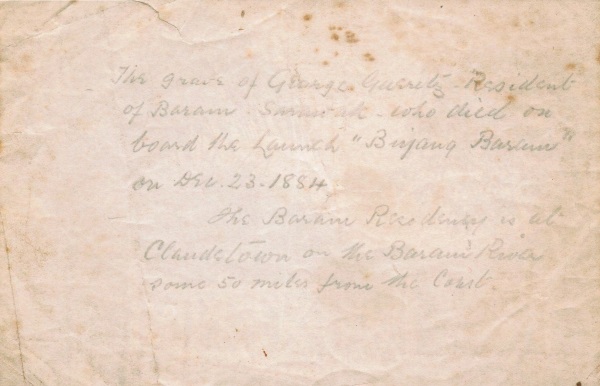 The grave of George Gueritz Resident
of Baram - Sarawak - who died on
board the launch "Bujang Baram"
on Dec. 23. 1884
The Baram Residency is at
Claudetown on the Baram River
some 50 miles from the Coast.